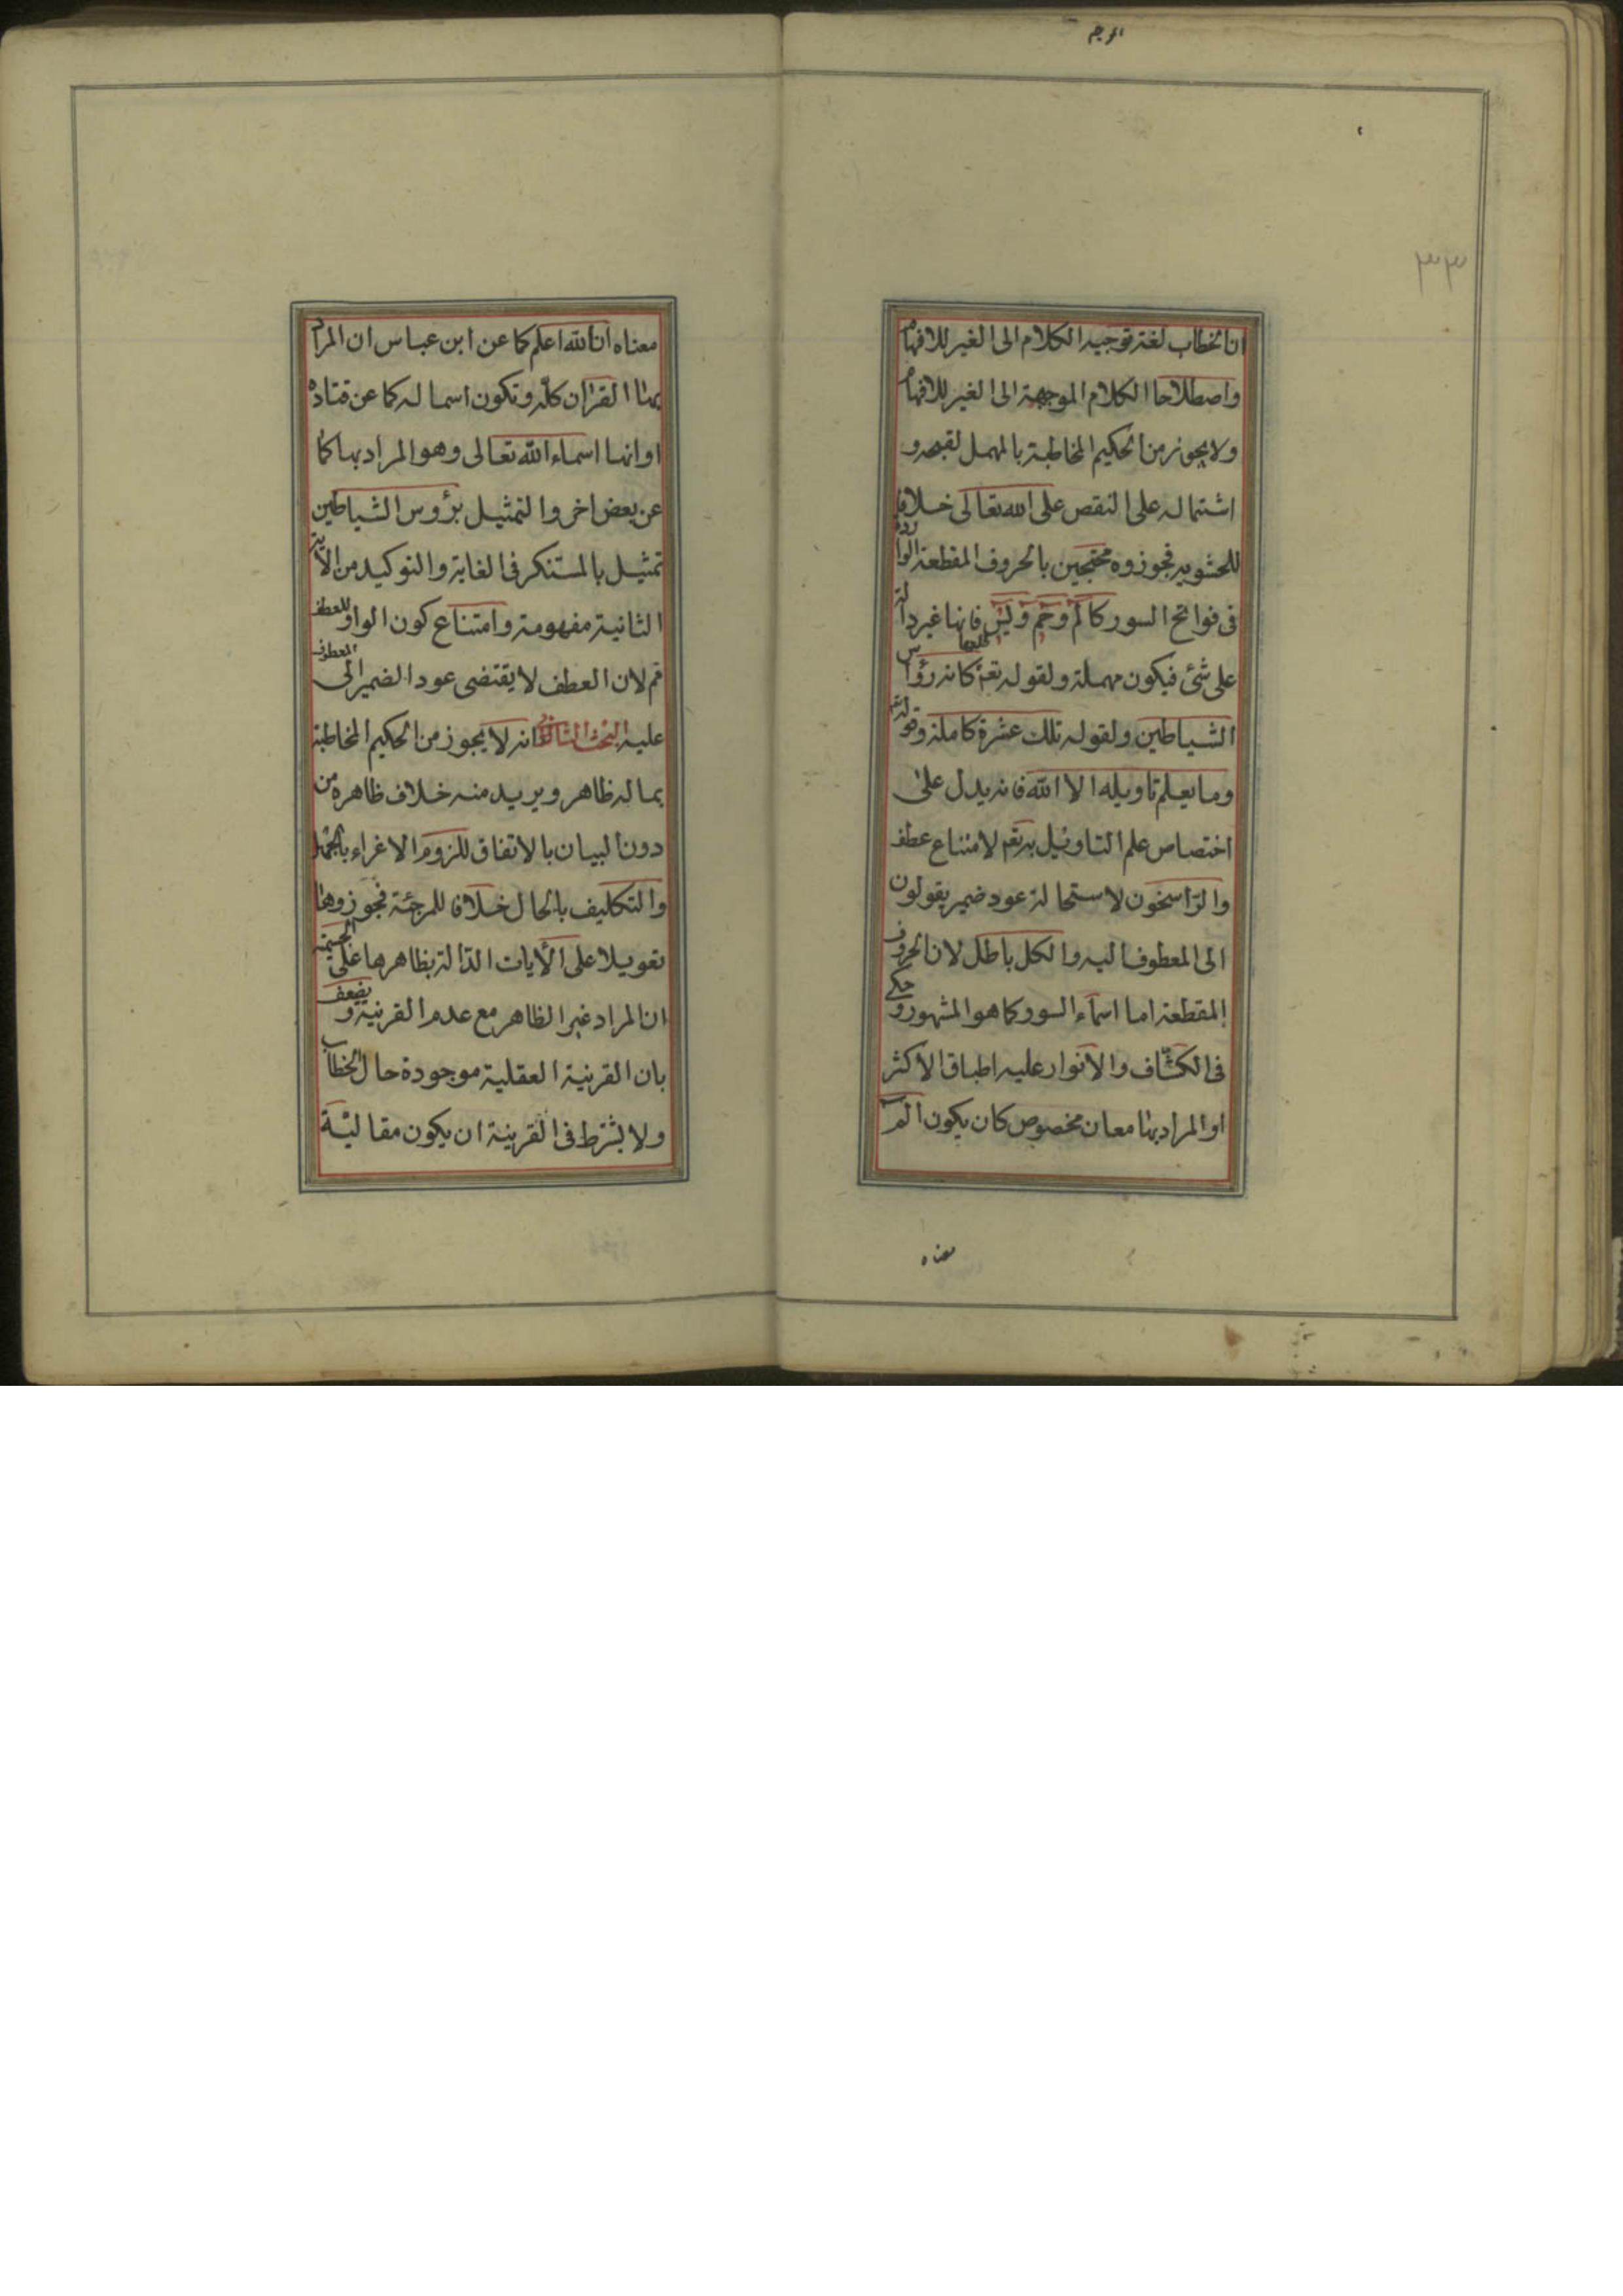 ٣٣
ان الخطاب لغة توجيه الكلام الى الغير للافهام
واصطلاحا الكلام الموجهة الى الغير للافهام
ولا يجوز من الحكيم المخاطبة بالمهمل لقبحه و
اشتماله على النقص على الله تعالى خلافا
للحشوية فجوزوه محتجين بالحروف المقطعة الواردة
فى فواتح السور كالم وحم ويس فانها غير دالة
على شئ فيكون مهملة ولقوله تعم طلعها كانه رؤس
الشياطين ولقوله تلك عشرة كاملة وقوله تعم
وما يعلم تاويله الا الله فانه يدل على
اختصاص علم التاويل به تعم لامتناع عطف
والراسخون لاستحالة عود ضمير يقولون
الى المعطوف اليه والكل باطل لان الحروف
المقطعة اما اسماء السور كما هو المشهور و حكى
فى الكشّاف والأنوار عليه اطباق الاكثر
او المراد بها معان مخصوص كان يكون الم
معناه
معناه انا لله اعلم كما عن ابن عباس ان المراد
بها القران كله وتكون اسما له كما عن قتاده
او انها اسماء الله تعالى وهو المراد بها كما
عن بعض اخر والتمثيل برؤس الشياطين
تمثيل بالمستنكر فى الغاية والتوكيد من الاية
الثانية مفهومة وامتناع كون الواو للعطف
مم لان العطف لا يقتضى عود الضمير الى المعطوف
عليه البحث الثانى انه لا يجوز من الحكيم المخاطبة
بما له ظاهر ويريد منه خلاف ظاهره من
دون البيان بالاتفاق للزوم الاغراء بالجهل
والتكليف بالحال خلافا للمرجئة فجوزوها
تعويلا على الأيات الدّالة بظاهرها على الجسمية
ان المراد غير الظاهر مع عدم القرنية و يضعف
بان القرنية العقلية موجودة حال الخطاب
ولا يشترط فى القرينة ان يكون مقاليّة